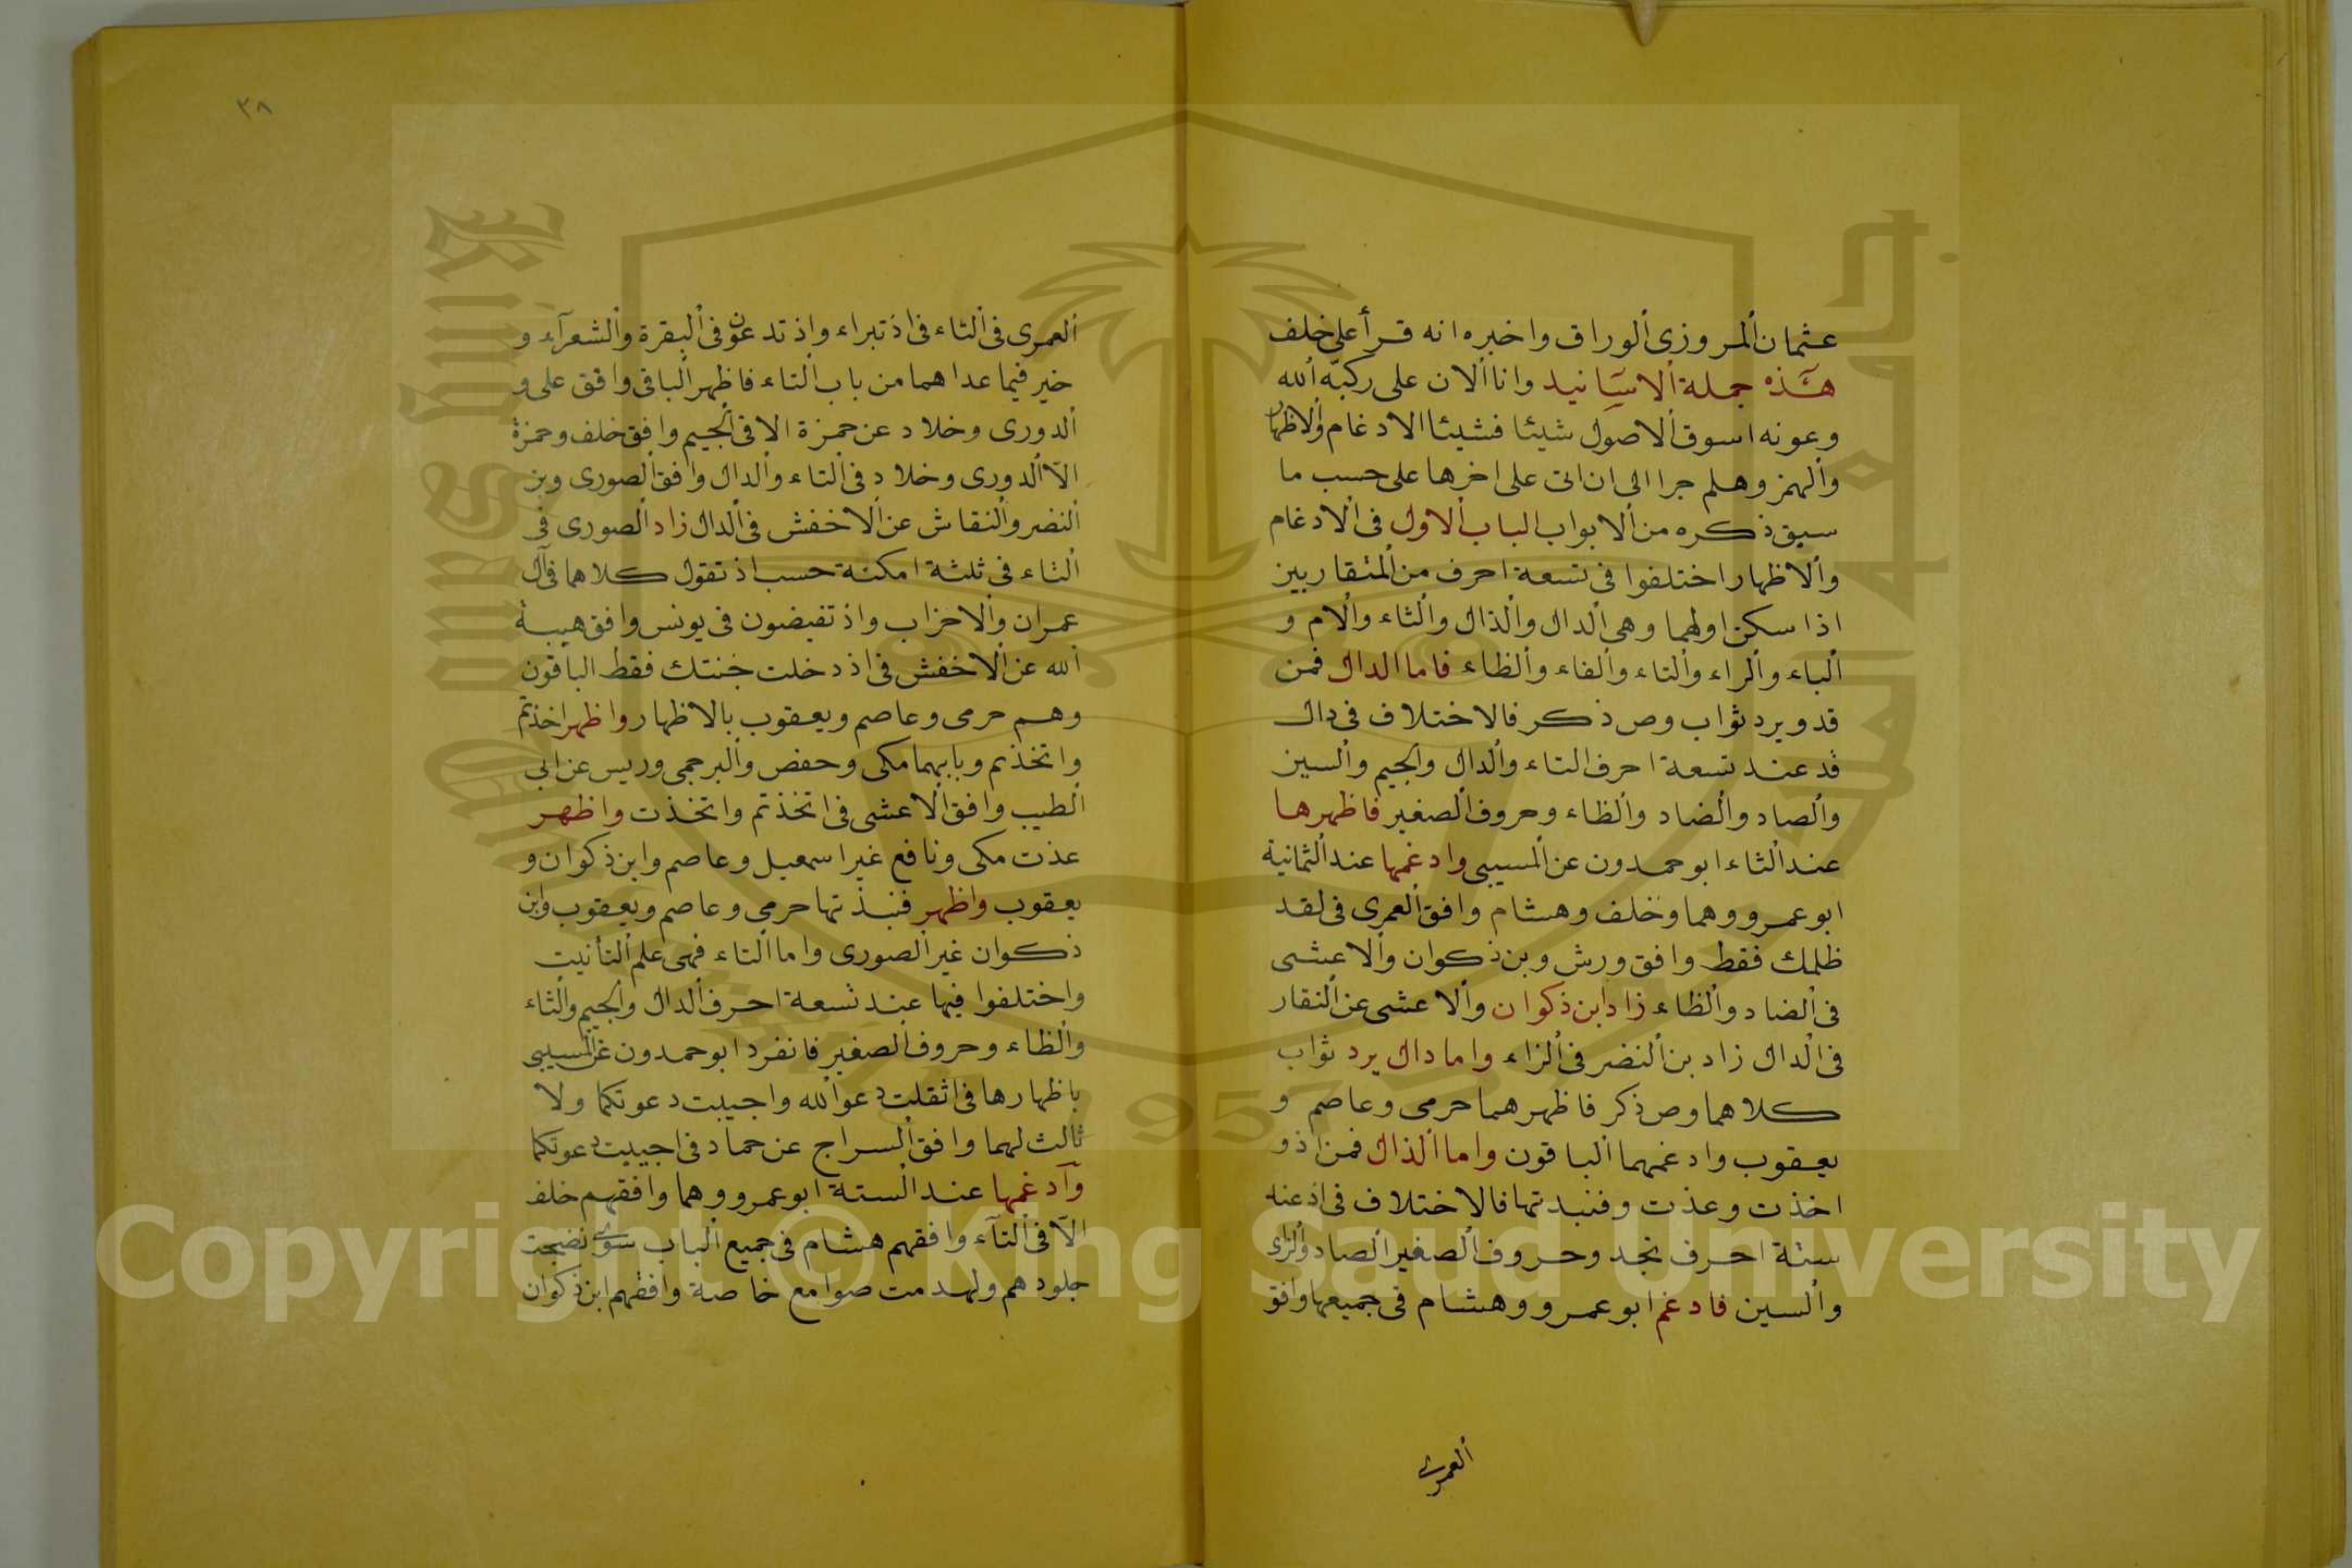 عثمان المروزى الوراق واخبره انه قرأ على خلف
هذه جملة الاسانيد وانا الان على ركبه الله
وعونه اسوق الاصول شيئا فشيئا الادغام والاظهار
والهمز وهلم جرا الى ان اتى على اخرها على حسب ما
سبق ذكره من الابواب الباب الاول فى الادغام
والاظهار اختلفوا فى تسعة احرف من المتقاربين
اذا سكن اولهما وهى الدال والذال والثاء والام و
الباء والراء والتاء والفاء والظاء فاما الدال فمن
قد ويرد ثواب وص ذكر فالاختلاف فى دال
قد عند تسعة احرف التاء والدال والجيم والسين
والصاد والضاد والظاء وحروف الصغير فاظهرها
عند الثاء ابو حمدون عن المسيبى وادغمها عند الثمانية
ابو عمرو وهما وخلف وهشام وافق العمرى فى لقد
ظلمك فقط وافق ورش وبن ذكوان والاعشى
فى الضاد والظاء زاد ابن ذكوان والاعشى عن النقار
فى الدال زاد بن النضر فى الزاء واما دال يرد ثواب
كلاهما وص ذكر فاظهرهما حرمى وعاصم و
يعقوب وادغمهما الباقون واما الذال فمن اذ و
اخذت وعذت وفنبدتها فالاختلاف فى اذ عند
ستة احرف تجد وحروف الصغير الصاد والزاى
والسين فادغم ابو عمرو وهشام فى جميعها وافق
العمرى
٣٨
العمرى فى التاء فى اذ تبراء واذ تدعون فى البقرة والشعرآء و
خير فيما عداهما من باب التاء فاظهر الباقى وافق على و
الدورى وخلاد عن حمزة الا فى الجيم وافق خلف وحمزة
الا الدورى وخلاد فى التاء والدال وافق الصورى وبن
النضر والنقاش عن الاخفش فى الدال زاد الصورى فى
التاء فى ثلثة امكنة حسب اذ تقول كلاهما فى آل
عمران والاحزاب واذ تفيضون فى يونس وافق هيبة
الله عن الاخفش فى اذ دخلت جنتك فقط الباقون
وهم حرمى وعاصم ويعقوب بالاظهار واظهر اخذتم
واتخذتم وبابهما مكى وحفص والبرجمى ورويس عن ابى
الطيب وافق الاعشى فى اتخذتم واتخذت واظهر
عذت مكى ونافع غير اسمعيل وعاصم وابن ذكوان و
يعقوب واظهر فنبذتها حرمى وعاصم ويعقوب وابن
ذكوان غير الصورى واما التاء فهى علم التأنيث
واختلفوا فيها عند تسعة احرف الدال والجيم والثاء
والظاء وحروف الصغير فانفرد ابو حمدون عن المسيبى
باظهارها فى اثقلت دعوا الله واجيبت دعوتكما ولا
ثالث لهما وافق السراج عن حماد فى اجيبت دعوتكما
وادغمها عند الستة ابو عمرو وهما وافقهم خلف
الا فى الثآء وافقهم هشام فى جميع الباب سوى نضجت
جلودهم ولهدمت صوامع خاصة وافقهم ابن ذكوان
Copyright © King Saud University